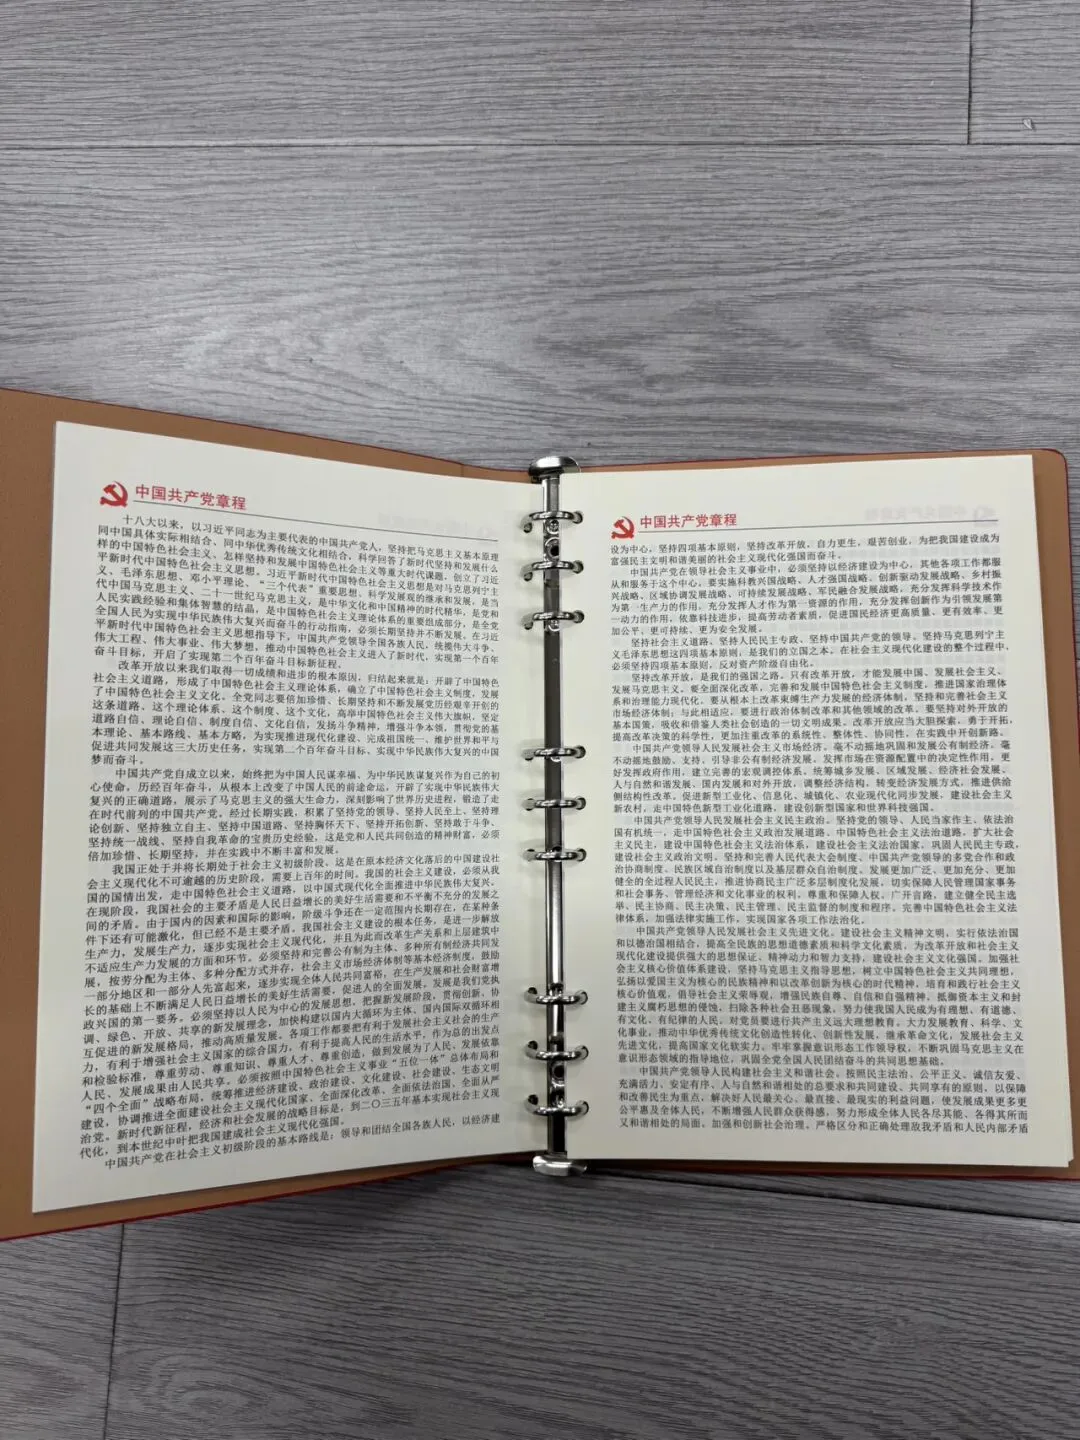 中国共产党章程
十八大以来，以习近平同志为主要代表的中国共产党人，坚持把马克思主义基本原理
同中国具体实际相结合、同中华优秀传统文化相结合，科学回答了新时代坚持和发展什么
样的中国特色社会主义、怎样坚持和发展中国特色社会主义等重大时代课题，创立了习近
平新时代中国特色社会主义思想。习近平新时代中国特色社会主义思想是对马克思列宁主
义、毛泽东思想、邓小平理论、“三个代表”重要思想、科学发展观的继承和发展，是当
代中国马克思主义、二十一世纪马克思主义，是中华文化和中国精神的时代精华，是党和
人民实践经验和集体智慧的结晶，是中国特色社会主义理论体系的重要组成部分，是全党
全国人民为实现中华民族伟大复兴而奋斗的行动指南，必须长期坚持并不断发展。在习近
平新时代中国特色社会主义思想指导下，中国共产党领导全国各族人民，统揽伟大斗争、
伟大工程、伟大事业、伟大梦想，推动中国特色社会主义进入了新时代，实现第一个百年
奋斗目标，开启了实现第二个百年奋斗目标新征程。
改革开放以来我们取得一切成绩和进步的根本原因，归结起来就是：开辟了中国特色
社会主义道路，形成了中国特色社会主义理论体系，确立了中国特色社会主义制度，发展
了中国特色社会主义文化。全党同志要倍加珍惜、长期坚持和不断发展党历经艰辛开创的
这条道路、这个理论体系、这个制度、这个文化，高举中国特色社会主义伟大旗帜，坚定
道路自信、理论自信、制度自信、文化自信，发扬斗争精神，增强斗争本领，贯彻党的基
本理论、基本路线、基本方略，为实现推进现代化建设、完成祖国统一、维护世界和平与
促进共同发展这三大历史任务，实现第二个百年奋斗目标、实现中华民族伟大复兴的中国
梦而奋斗。
中国共产党自成立以来，始终把为中国人民谋幸福、为中华民族谋复兴作为自己的初
心使命，历经百年奋斗，从根本上改变了中国人民的前途命运，开辟了实现中华民族伟大
复兴的正确道路，展示了马克思主义的强大生命力，深刻影响了世界历史进程，锻造了走
在时代前列的中国共产党。经过长期实践，积累了坚持党的领导、坚持人民至上、坚持理
论创新、坚持独立自主、坚持中国道路、坚持胸怀天下、坚持开拓创新、坚持敢于斗争、
坚持统一战线、坚持自我革命的宝贵历史经验，这是党和人民共同创造的精神财富，必须
倍加珍惜、长期坚持，并在实践中不断丰富和发展。
我国正处于并将长期处于社会主义初级阶段。这是在原本经济文化落后的中国建设社
会主义现代化不可逾越的历史阶段，需要上百年的时间。我国的社会主义建设，必须从我
国的国情出发，走中国特色社会主义道路，以中国式现代化全面推进中华民族伟大复兴。
在现阶段，我国社会的主要矛盾是人民日益增长的美好生活需要和不平衡不充分的发展之
间的矛盾。由于国内的因素和国际的影响，阶级斗争还在一定范围内长期存在，在某种条
件下还有可能激化，但已经不是主要矛盾。我国社会主义建设的根本任务，是进一步解放
生产力，发展生产力，逐步实现社会主义现代化，并且为此而改革生产关系和上层建筑中
不适应生产力发展的方面和环节。必须坚持和完善公有制为主体、多种所有制经济共同发
展，按劳分配为主体、多种分配方式并存，社会主义市场经济体制等基本经济制度，鼓励
一部分地区和一部分人先富起来，逐步实现全体人民共同富裕，在生产发展和社会财富增
长的基础上不断满足人民日益增长的美好生活需要，促进人的全面发展。发展是我们党执
政兴国的第一要务。必须坚持以人民为中心的发展思想，把握新发展阶段，贯彻创新、协
调、绿色、开放、共享的新发展理念，加快构建以国内大循环为主体、国内国际双循环相
互促进的新发展格局，推动高质量发展。各项工作都要把有利于发展社会主义社会的生产
力，有利于增强社会主义国家的综合国力，有利于提高人民的生活水平，作为总的出发点
和检验标准，尊重劳动、尊重知识、尊重人才、尊重创造，做到发展为了人民、发展依靠
人民、发展成果由人民共享。必须按照中国特色社会主义事业“五位一体”总体布局和
“四个全面”战略布局，统筹推进经济建设、政治建设、文化建设、社会建设、生态文明
建设，协调推进全面建设社会主义现代化国家、全面深化改革、全面依法治国、全面从严
治党。新时代新征程，经济和社会发展的战略目标是，到二〇三五年基本实现社会主义现
代化，到本世纪中叶把我国建成社会主义现代化强国。
中国共产党在社会主义初级阶段的基本路线是：领导和团结全国各族人民，以经济建
中国共产党章程
设为中心，坚持四项基本原则，坚持改革开放，自力更生，艰苦创业，为把我国建设成为
富强民主文明和谐美丽的社会主义现代化强国而奋斗。
中国共产党在领导社会主义事业中，必须坚持以经济建设为中心，其他各项工作都服
从和服务于这个中心。要实施科教兴国战略、人才强国战略、创新驱动发展战略、乡村振
兴战略、区域协调发展战略、可持续发展战略、军民融合发展战略，充分发挥科学技术作
为第一生产力的作用，充分发挥人才作为第一资源的作用，充分发挥创新作为引领发展第
一动力的作用，依靠科技进步，提高劳动者素质，促进国民经济更高质量、更有效率、更
加公平、更可持续、更为安全发展。
坚持社会主义道路、坚持人民民主专政、坚持中国共产党的领导、坚持马克思列宁主
义毛泽东思想这四项基本原则，是我们的立国之本。在社会主义现代化建设的整个过程中，
必须坚持四项基本原则，反对资产阶级自由化。
坚持改革开放，是我们的强国之路。只有改革开放，才能发展中国、发展社会主义、
发展马克思主义。要全面深化改革，完善和发展中国特色社会主义制度，推进国家治理体
系和治理能力现代化。要从根本上改革束缚生产力发展的经济体制，坚持和完善社会主义
市场经济体制；与此相适应，要进行政治体制改革和其他领域的改革。要坚持对外开放的
基本国策，吸收和借鉴人类社会创造的一切文明成果。改革开放应当大胆探索，勇于开拓，
提高改革决策的科学性，更加注重改革的系统性、整体性、协同性，在实践中开创新路。
中国共产党领导人民发展社会主义市场经济。毫不动摇地巩固和发展公有制经济，毫
不动摇地鼓励、支持、引导非公有制经济发展。发挥市场在资源配置中的决定性作用，更
好发挥政府作用，建立完善的宏观调控体系。统筹城乡发展、区域发展、经济社会发展、
人与自然和谐发展、国内发展和对外开放，调整经济结构，转变经济发展方式，推进供给
侧结构性改革。促进新型工业化、信息化、城镇化、农业现代化同步发展，建设社会主义
新农村，走中国特色新型工业化道路，建设创新型国家和世界科技强国。
中国共产党领导人民发展社会主义民主政治。坚持党的领导、人民当家作主、依法治
国有机统一，走中国特色社会主义政治发展道路、中国特色社会主义法治道路，扩大社会
主义民主，建设中国特色社会主义法治体系，建设社会主义法治国家，巩固人民民主专政，
建设社会主义政治文明。坚持和完善人民代表大会制度、中国共产党领导的多党合作和政
治协商制度、民族区域自治制度以及基层群众自治制度。发展更加广泛、更加充分、更加
健全的全过程人民民主，推进协商民主广泛多层制度化发展，切实保障人民管理国家事务
和社会事务、管理经济和文化事业的权利。尊重和保障人权。广开言路，建立健全民主选
举、民主协商、民主决策、民主管理、民主监督的制度和程序。完善中国特色社会主义法
律体系，加强法律实施工作，实现国家各项工作法治化。
中国共产党领导人民发展社会主义先进文化。建设社会主义精神文明，实行依法治国
和以德治国相结合，提高全民族的思想道德素质和科学文化素质，为改革开放和社会主义
现代化建设提供强大的思想保证、精神动力和智力支持，建设社会主义文化强国。加强社
会主义核心价值体系建设，坚持马克思主义指导思想，树立中国特色社会主义共同理想，
弘扬以爱国主义为核心的民族精神和以改革创新为核心的时代精神，培育和践行社会主义
核心价值观，倡导社会主义荣辱观，增强民族自尊、自信和自强精神，抵御资本主义和封
建主义腐朽思想的侵蚀，扫除各种社会丑恶现象，努力使我国人民成为有理想、有道德、
有文化、有纪律的人民。对党员要进行共产主义远大理想教育。大力发展教育、科学、文
化事业，推动中华优秀传统文化创造性转化、创新性发展，继承革命文化，发展社会主义
先进文化，提高国家文化软实力。牢牢掌握意识形态工作领导权，不断巩固马克思主义在
意识形态领域的指导地位，巩固全党全国人民团结奋斗的共同思想基础。
中国共产党领导人民构建社会主义和谐社会。按照民主法治、公平正义、诚信友爱、
充满活力、安定有序、人与自然和谐相处的总要求和共同建设、共同享有的原则，以保障
和改善民生为重点，解决好人民最关心、最直接、最现实的利益问题，使发展成果更多更
公平惠及全体人民，不断增强人民群众获得感，努力形成全体人民各尽其能、各得其所而
又和谐相处的局面。加强和创新社会治理。严格区分和正确处理敌我矛盾和人民内部矛盾